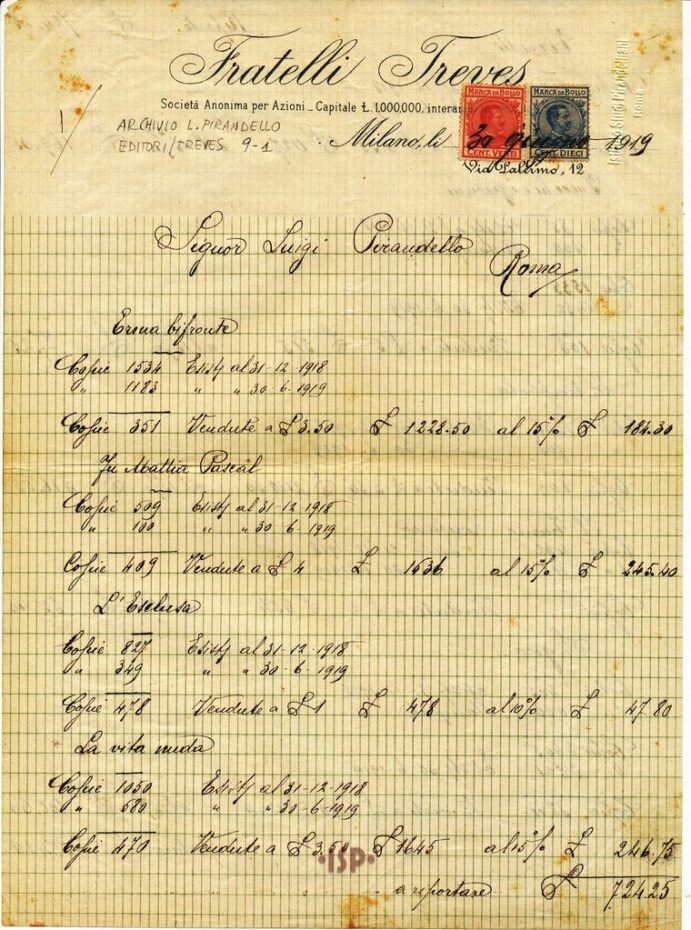 Fratelli Treves
Società Anonima per Azioni _ Capitale Ł. 1,000,000, intera
MARCA DA BOLLO
CENT. VENTI
MARCA DA BOLLO
CENT. DIECI
Istituto Studi Pirandelliani
Roma
1/
ARCHIVIO L. PIRANDELLO
EDITORI/TREVES 9-1
Milano, li 30 giugno 1919
Via Palermo, 12
Signor Luigi Pirandello
Roma
Erma bifronte
Copie 1534 Esisti al 31-12-1918
" 1183 " " 30-6-1919
Copie 351 Vendute a £ 3.50 £ 1228.50 al 15% £ 184.30
Fu Mattia Pascal
Copie 509 Esisti al 31-12-1918
" 100 " " 30-6-1919
Copie 409 Vendute a £ 4 £ 1636 al 15% £ 245.40
L'Esclusa
Copie 827 Esisti al 31-12-1918
" 349 " " 30-6-1919
Copie 478 Vendute a £ 1 £ 478 al 10% £ 47.80
La vita nuda
Copie 1050 Esisti al 31-12-1918
" 580 " " 30-6-1919
Copie 470 Vendute a £ 3.50 £ 1645 al 15% £ 246.75
·ISP·
a riportare £ 724.25